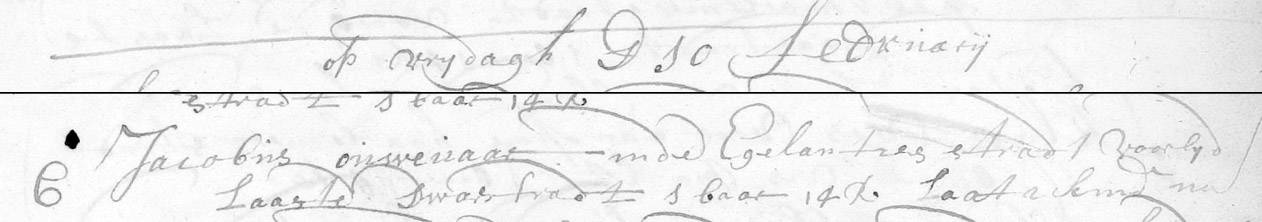 op vrydagh D 10 Februarij
straat 1 baar 14 k.
6 Jacobus ouwenaar inde Egelantres straat voorby d
Laaste dwarstraat 1 baar 14 k. Laat